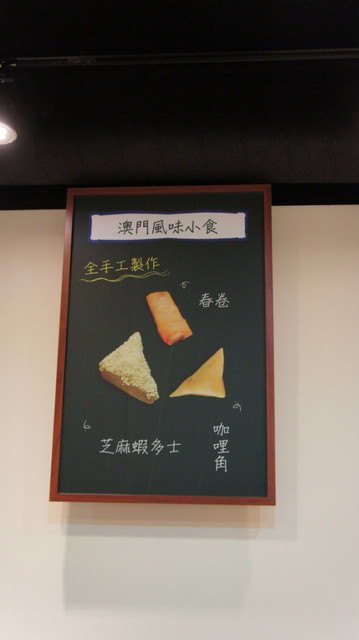 澳門風味小食
全手工製作
春卷
芝麻蝦多士
咖哩角